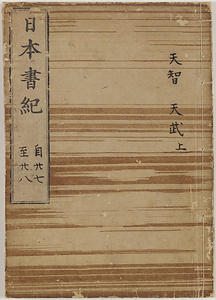 日本書紀
自廿七
至廿八
天智 天武上